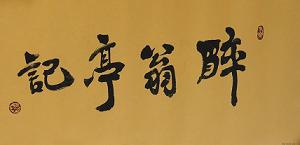 醉翁亭記